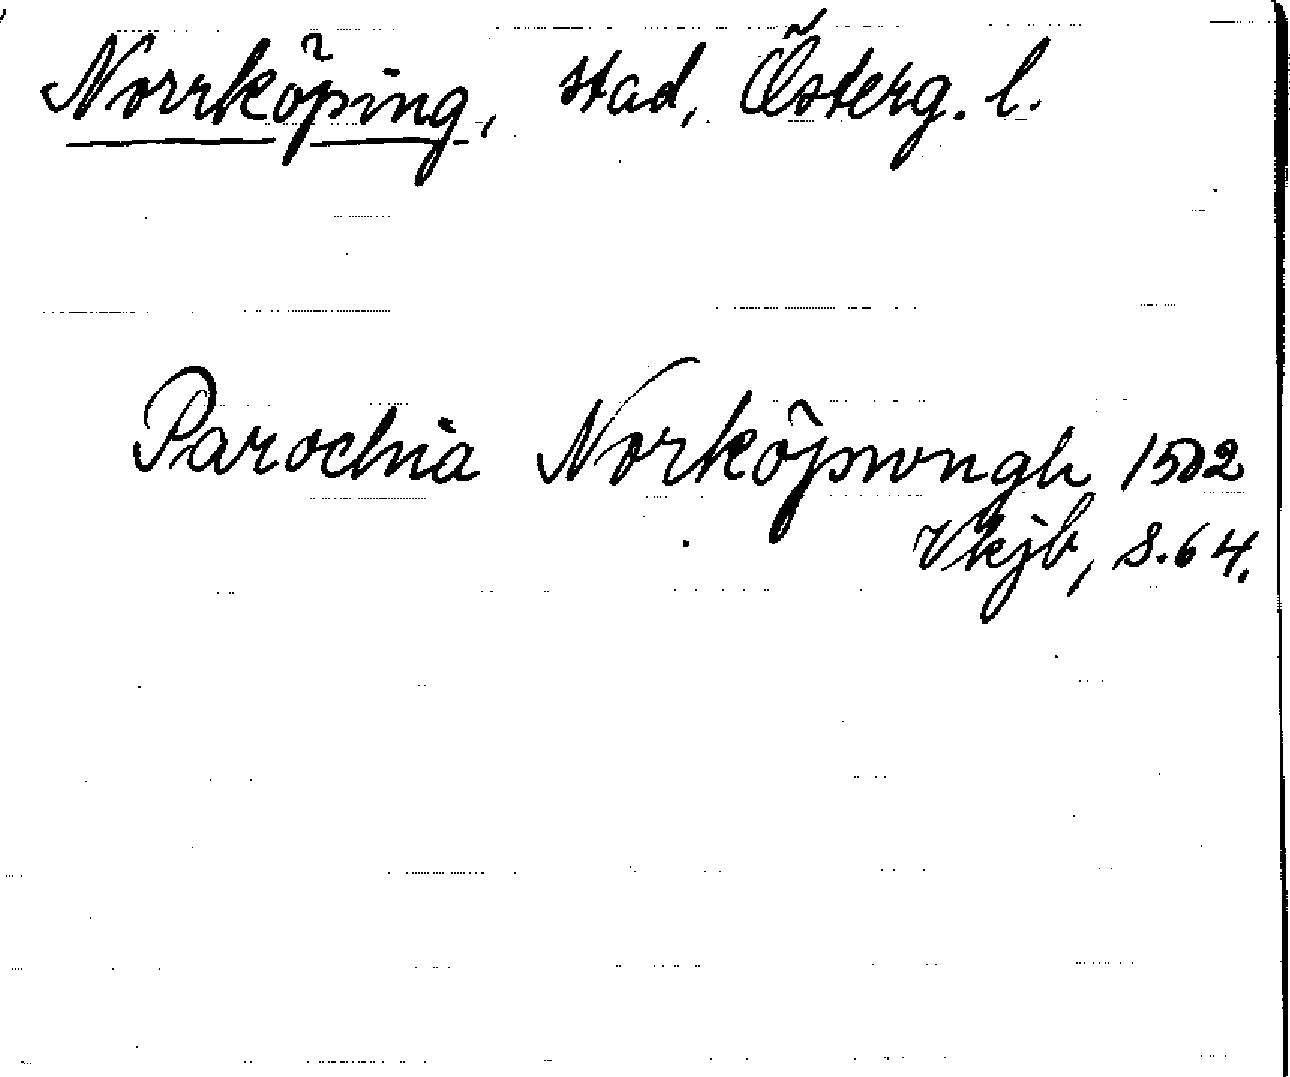 Norrköping, stad, Österg. l.
Parochia Norköpwngh 1502
Vkjb, s. 64.